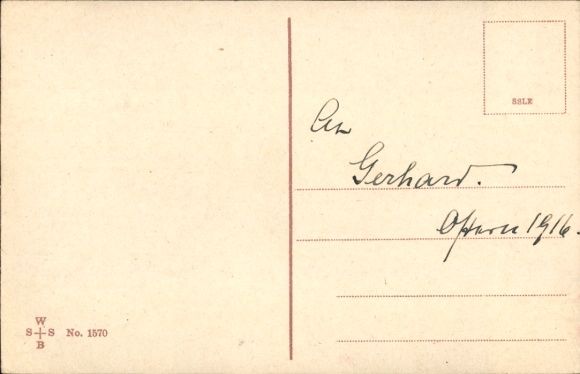 SSLE
An
Gerhard.
Ostern 1916.
W
S S
B
No. 1570